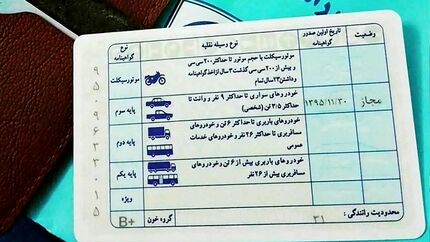 وضعیت
تاریخ اولین صدور گواهینامه
نوع وسیله نقلیه
نوع گواهینامه
موتورسیکلت با حجم موتور تا حداکثر ۲۰۰ سی سی
و بیش از ۲۰۰ سی سی گذشت ۳ سال از اخذ گواهینامه
وداشتن ۲۳ سال تمام
موتورسیکلت
خودروهای سواری تا حداکثر ۹ نفر و وانت تا
حداکثر ۳/۵ تن (شخصی)
پایه سوم
۱۳۹۵/۱۱/۳۰
مجاز
خودروهای باربری تا حداکثر ۶ تن و خودروهای
مسافربری تا حداکثر ۲۶ نفر و خودروهای خدمات
عمومی
پایه دوم
خودروهای باربری بیش از ۶ تن و خودروهای
مسافربری بیش از ۲۶ نفر
پایه یکم
ویژه
محدودیت رانندگی : ۳۱
گروه خون : B+